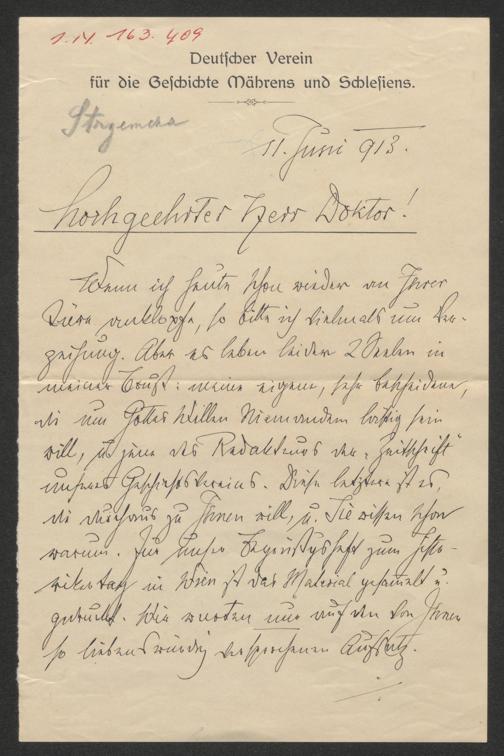 1.IV. 163.409
Deutscher Verein
für die Geschichte Mährens und Schlesiens.
Strzemcha
11. Juni 913.
Hochgeehrter Herr Doktor!
Wenn ich heute schon wieder an Ihrer
Türe anklopfe, so bitte ich vielmals um Ver-
zeihung. Aber es leben leider 2 Seelen in
meiner Brust: meine eigene, sehr bescheidene,
die um Gottes Willen Niemandem lästig sein
will, u. jene des Redakteurs der „Zeitschrift"
unseres Geschichtsvereins. Diese letztere ist es,
die durchaus zu Ihnen will, u. Sie wissen schon
warum. Für unser Begrüßungsheft zum Histo-
rikertag in Wien ist das Material gesammelt u.
gedruckt. Wir warten nur auf den von Ihnen
so liebenswürdig versprochenen Aufsatz.